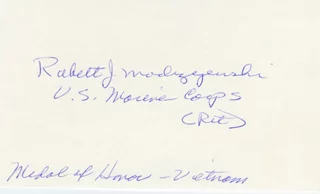 Robert J Modrzejewski
U.S. Marine Corps
(Ret)
Medal of Honor - Vietnam